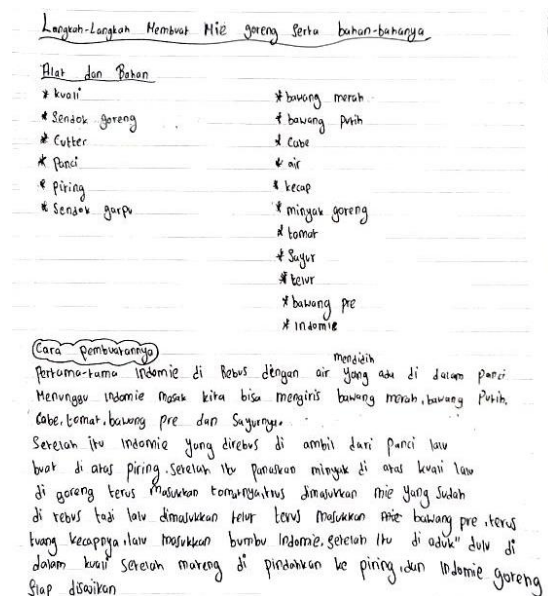 Langkah-Langkah Membuat Mie goreng Serta bahan-bahanya
Alat dan Bahan
* kuali
* Sendok goreng
* Cutter
* Panci
* Piring
* Sendok garpu
* bawang merah
* bawang putih
* Cabe
* air
* kecap
* minyak goreng
* tomat
* Sayur
* telur
* bawang pre
* indomie
Cara pembuatannya
mendidih
Pertama-tama Indomie di Rebus dengan air yang ada di dalam panci
Menunggu indomie masak kita bisa mengiris bawang merah, bawang Putih,
Cabe, tomat, bawang pre dan Sayurnya.
Setelah itu Indomie Yang direbus di ambil dari Panci lalu
buat di atas piring. Setelah itu Panaskan minyak di atas kuali lalu
di goreng terus masukkan tomatnya, trus dimasukkan mie Yang Sudah
di rebus tadi lalu dimasukkan telur terus masukkan mie bawang pre, terus
tuang kecapnya, lalu masukkan bumbu Indomie. Setelah itu di aduk" dulu di
dalam kuali Setelah mateng di pindahkan ke piring, dan Indomie goreng
Siap disajikan